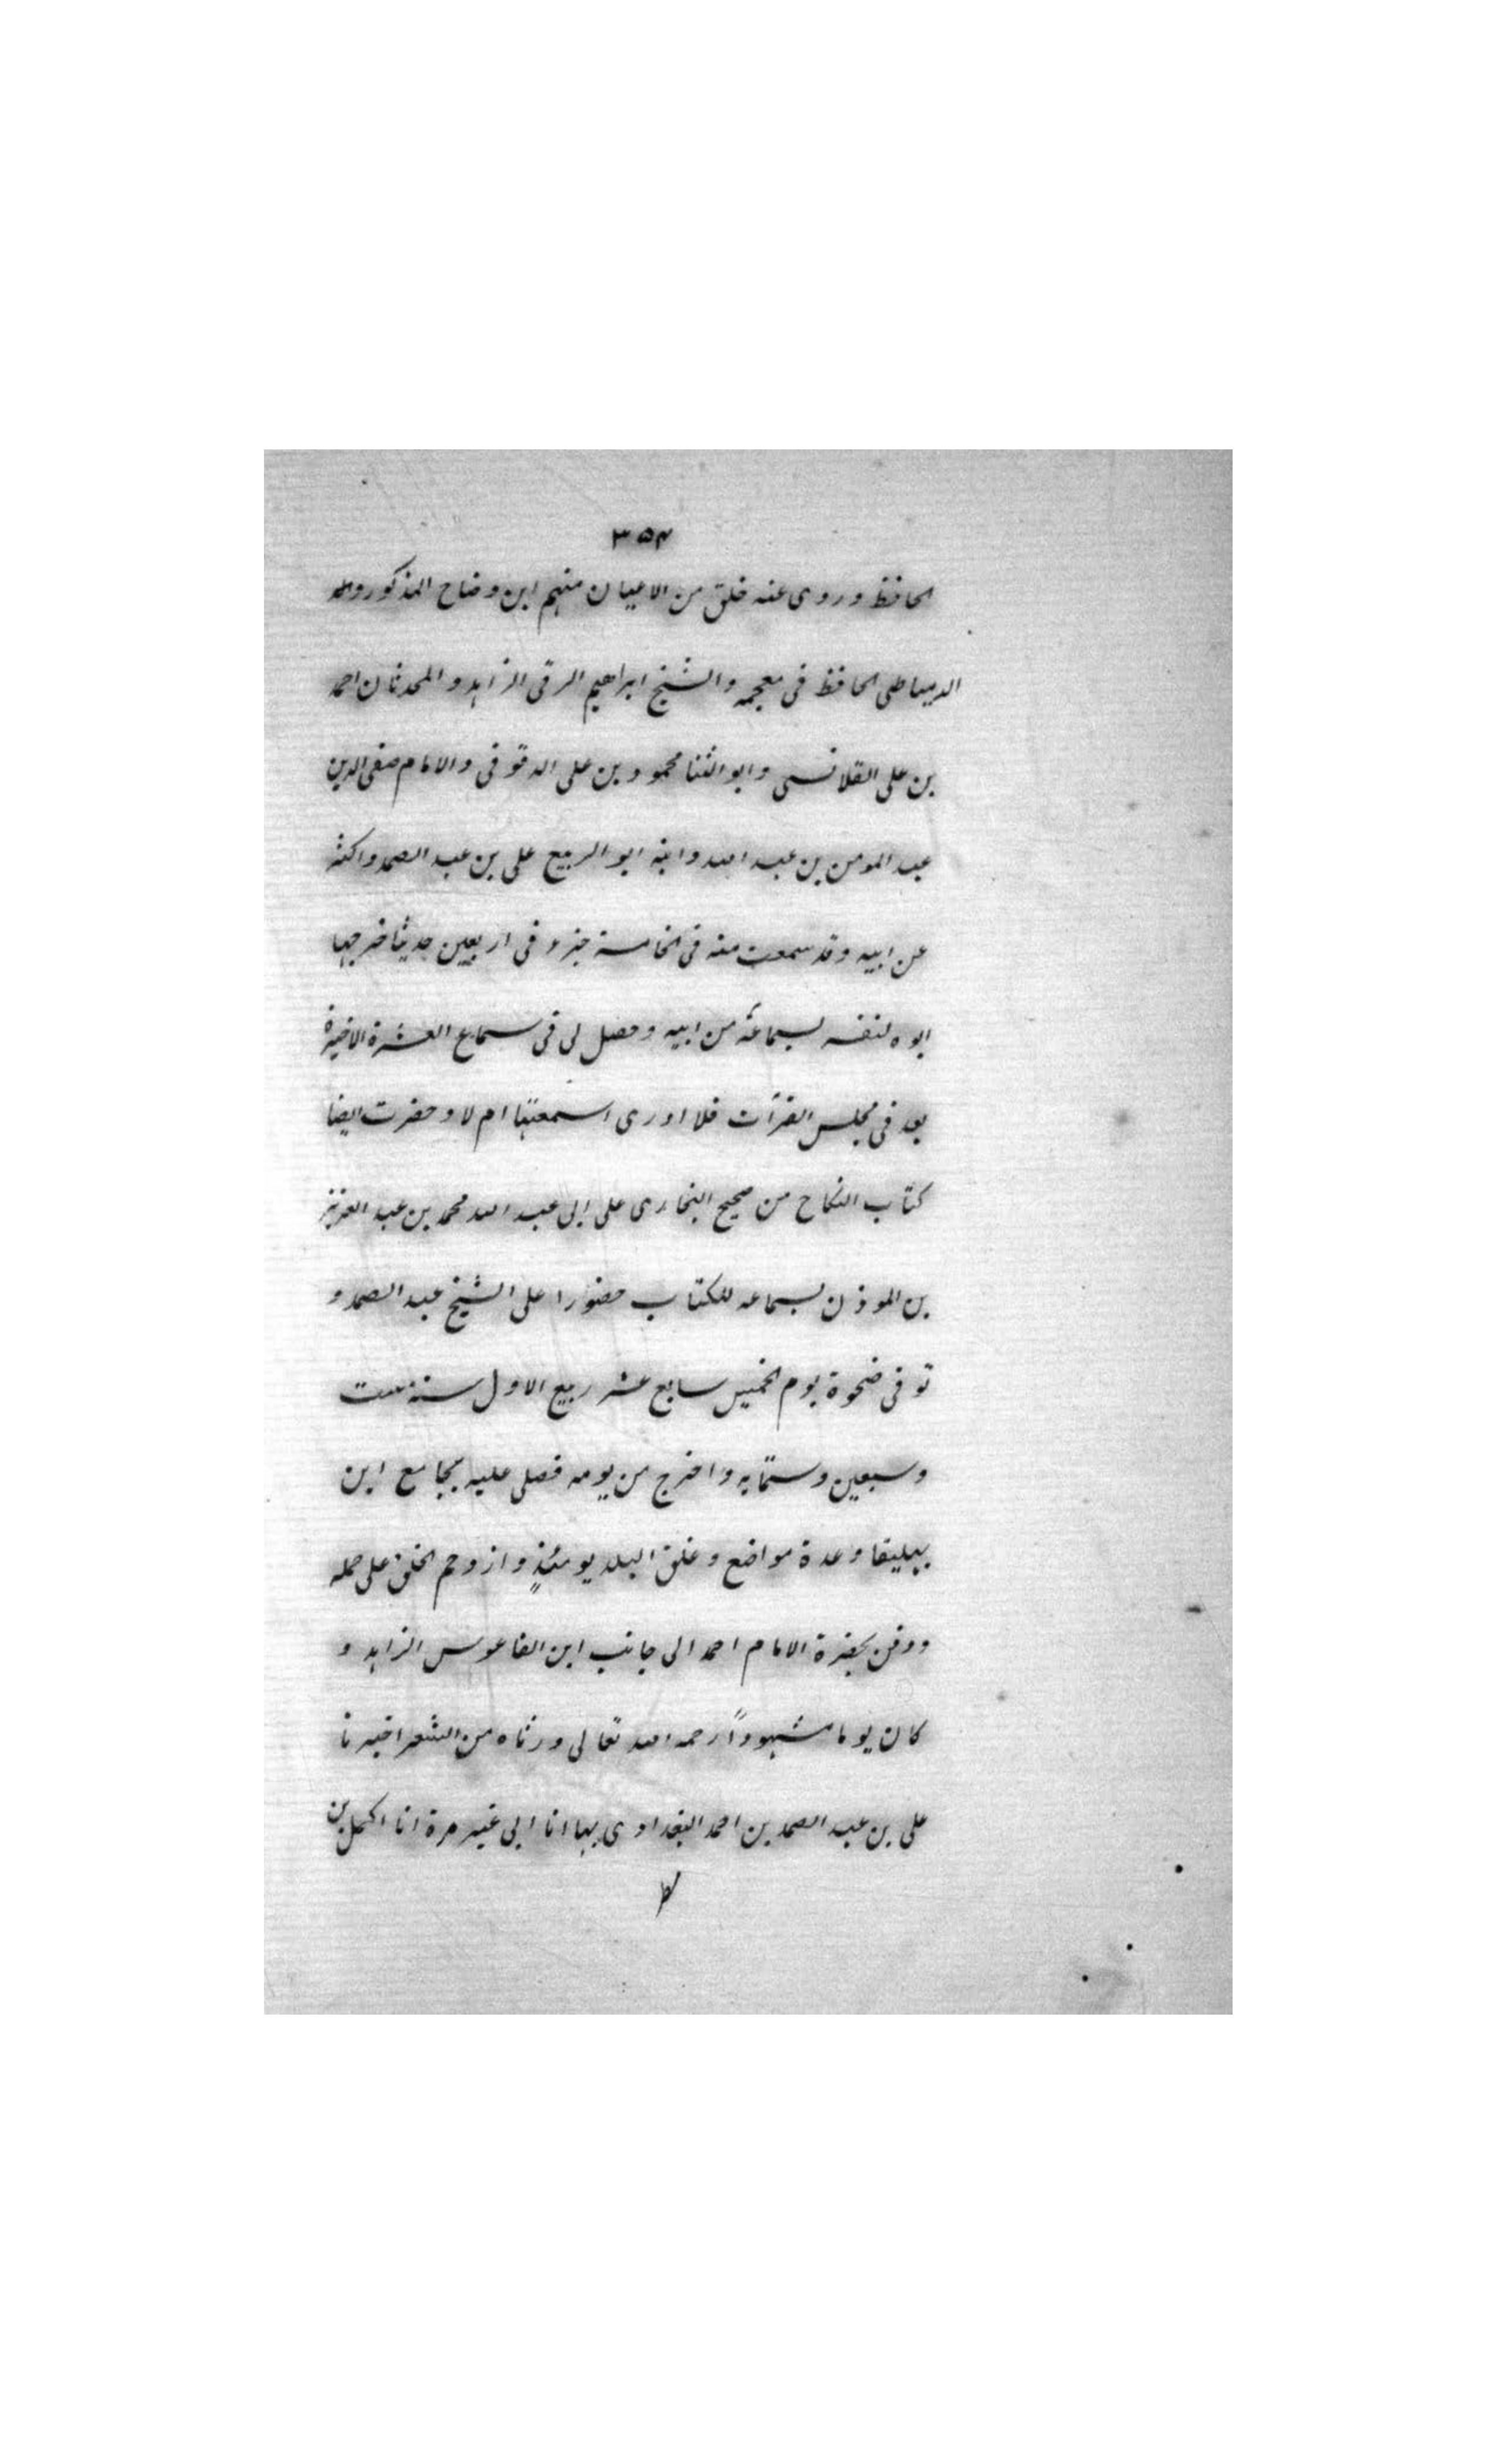 ٣٥٢
الحافظ وروى عنه خلق من الاعيان منهم ابن وضاح المذكور
الدمياطى الحافظ فى معجمه والشيخ ابراهيم الرقى الزاهد والمحدثان احمد
بن على القلانسى وابو الثنا محمود بن على الدقوقى والامام صفى الدين
عبد المومن بن عبد الله وابنه ابو الربيع على بن عبد الصمد واكثر
عن ابيه وقد سمعت منه فى الخامسة جزء فى اربعين حديثا خرجها
ابوه لنفسه بسماعه من ابيه وحصل لى فى سماع العشرة الاخيرة
بعد فى مجلس القرآت فلا ادرى اسمعتها ام لا وحضرت ايضا
كتاب النكاح من صحيح البخارى على ابى عبد الله محمد بن عبد العزيز
بن الموذن بسماعه للكتاب حضورا على الشيخ عبد الصمد و
توفى ضحوة يوم الخميس سابع عشر ربيع الاول سنة ست
وسبعين وستمايه واخرج من يومه فصلى عليه بجامع ابن
بهليقا وعدة مواضع وغلق البلد يومئذٍ وازدحم الخلق على حمله
ودفن بحضرة الامام احمد الى جانب ابن الفاعوس الزاهد و
كان يوما مشهودًا رحمه الله تعالى ورثاه من الشعر اخبرنا
على بن عبد الصمد بن احمد البغدادى بها انا ابى غير مرة انا اكمل بن